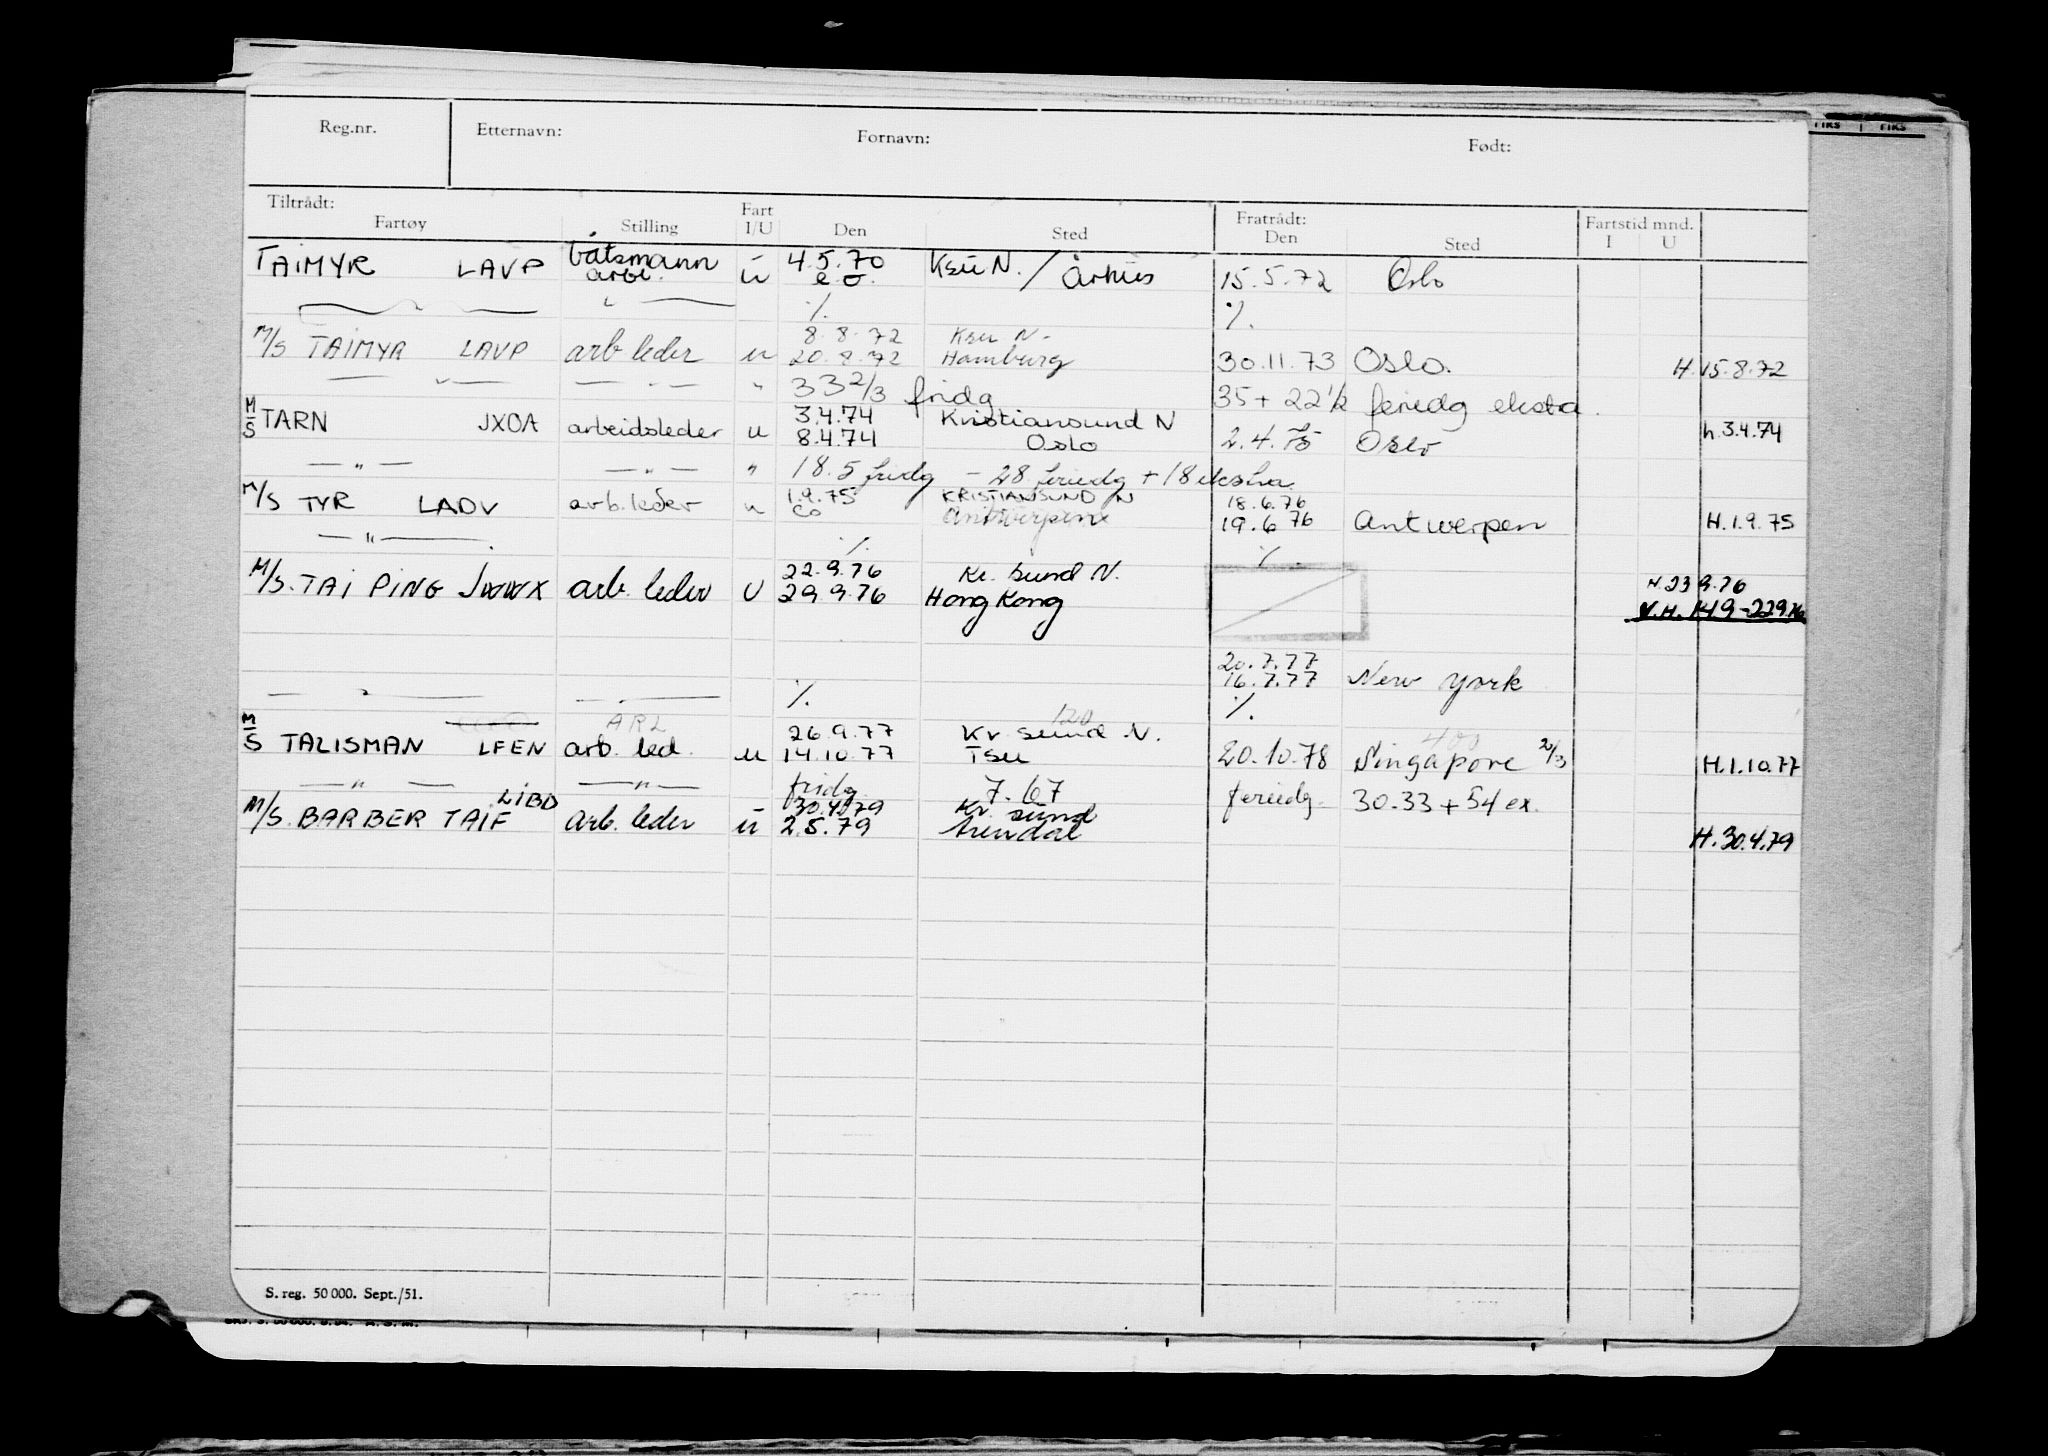 Reg.nr. Etternavn: Fornavn: Født:
Tiltrådt: Fratrådt: Fartstid mnd.
Fartøy Stilling Fart I/U Den Sted Den Sted I U
TAIMYR LAVP båtsmann ū 4.5.70 Ksu N. / Århus 15.5.72 Oslo
arbl. e.o.
— " — — " — ./. ./.
M/S TAIMYR LAVP arb leder u 8.8.72 Ksu N. 30.11.73 Oslo. H.15.8.72
20.8.72 Hamburg
— " — — " — " 33 2/3 fridg 35 + 22 1/2 feriedg ekstra.
M/S TARN JXOA arbeidsleder u 3.4.74 Kristiansund N 2.4.75 Oslo h.3.4.74
8.4.74 Oslo
— " — — " — " 18.5 fridg – 28 feriedg + 18 ekstra
M/S TYR LADV arb.leder u 1.9.75 KRISTIANSUND N 18.6.76
co Antwerpen 19.6 76 Antwerpen H.1.9.75
— " — ./. ./.
M/S. TAI PING JWWX arb. leder U 22.9.76 Kr. sund N. N.23 9.76
29.9.76 Hong Kong
20.7.77
16.7.77 New York
— " — — " — ./. ./.
ARL 120
M/S TALISMAN LFEN arb. led. u 26.9.77 Kr sund .N. 400
14.10.77 Tsu 20.10.78 Singapore 2/3 H.1.10.77
— " — — " — fridg. 7.67 feriedg. 30.33 + 54 ex.
M/S. BARBER TAIF LIBD arb. leder ū 30.4.79 Kr. sund
2.5.79 Arendal H.30.4.79
S. reg. 50 000. Sept./51.